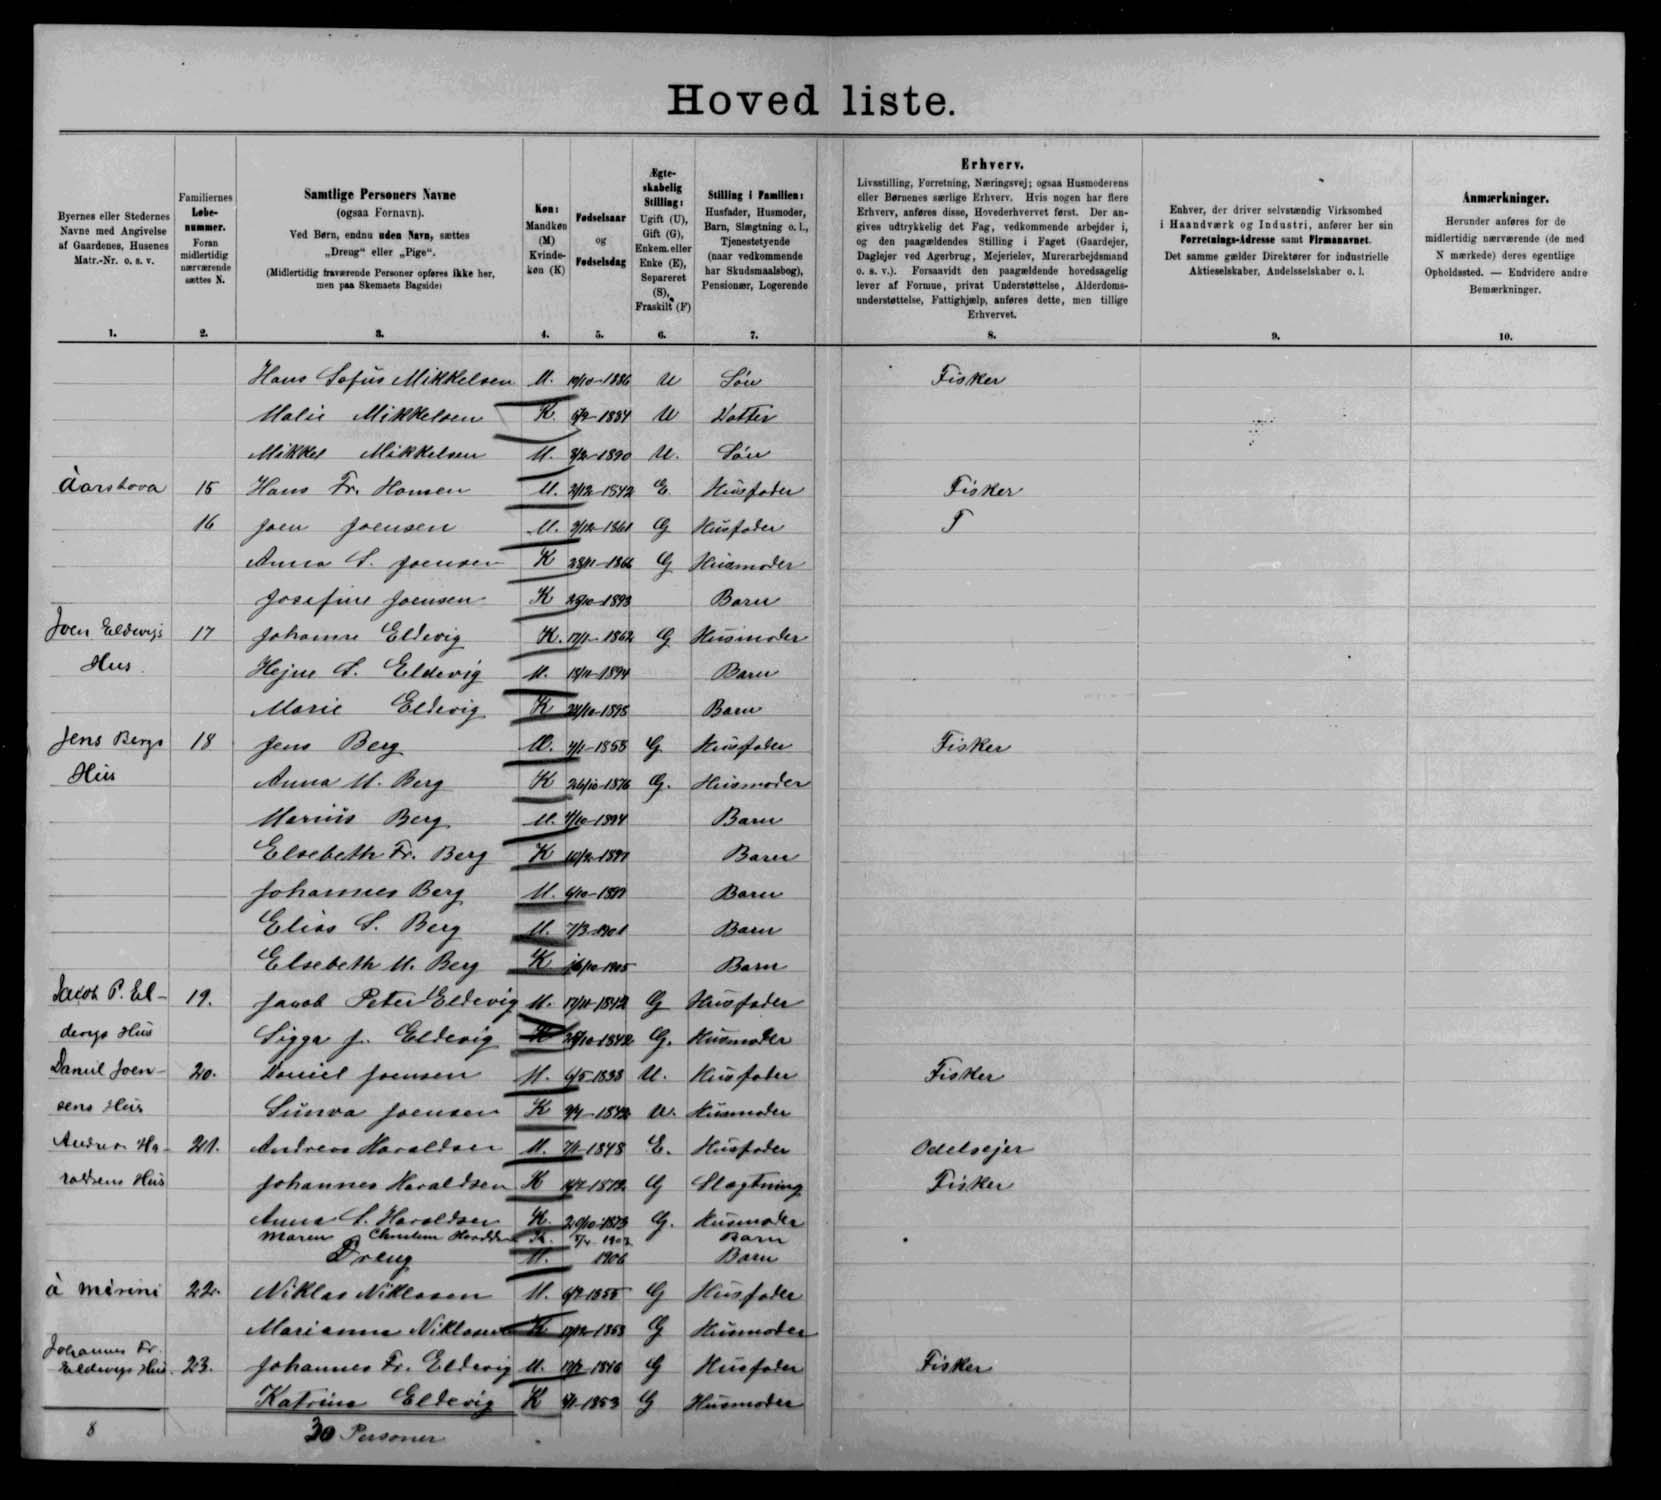 Hovedliste.
Byernes eller Stedernes
Navne med Angivelse
af Gaardenes, Husenes
Matr.-Nr. o. s. v.
1.
Familiernes
Løbe-
nummer.
Foran
midlertidig
nærværende
sættes N.
2.
Samtlige Personers Navne
(ogsaa Fornavn).
Ved Børn, endnu uden Navn, sættes
„Dreng“ eller „Pige“.
(Midlertidig fraværende Personer opføres ikke her,
men paa Skemaets Bagside)
3.
Køn:
Mandkøn
(M)
Kvinde-
køn (K)
4.
Fødselsaar
og
Fødselsdag
5.
Ægte-
skabelig
Stilling:
Ugift (U),
Gift (G),
Enkem. eller
Enke (E),
Separeret
(S),
Fraskilt (F)
6.
Stilling i Familien:
Husfader, Husmoder,
Barn, Slægtning o. l.,
Tjenestetyende
(naar vedkommende
har Skudsmaalsbog),
Pensionær, Logerende
7.
Erhverv.
Livsstilling, Forretning, Næringsvej; ogsaa Husmoderens
eller Børnenes særlige Erhverv. Hvis nogen har flere
Erhverv, anføres disse, Hovederhvervet først. Der an-
gives udtrykkelig det Fag, vedkommende arbejder i,
og den paagældendes Stilling i Faget (Gaardejer,
Daglejer ved Agerbrug, Mejerielev, Murerarbejdsmand
o. s. v.). Forsaavidt den paagældende hovedsagelig
lever af Formue, privat Understøttelse, Alderdoms-
understøttelse, Fattighjælp, anføres dette, men tillige
Erhvervet.
8.
Enhver, der driver selvstændig Virksomhed
i Haandværk og Industri, anfører her sin
Forretnings-Adresse samt Firmanavnet.
Det samme gælder Direktører for industrielle
Aktieselskaber, Andelsselskaber o. l.
9.
Anmærkninger.
Herunder anføres for de
midlertidig nærværende (de med
N mærkede) deres egentlige
Opholdssted. — Endvidere andre
Bemærkninger.
10.
Hans Sofus Mikkelsen M. 1886 U Søn Fisker
Malie Mikkelsen K. 1884 U Datter
Mikkel Mikkelsen M. 1890 U. Søn
15 Hans Fr. Hansen M. 2/12-1842 E Husfader Fisker
16 Joen Joensen M. 1861 G Husfader
Anna S. Joensen K 1866 G Husmoder
Josefine Joensen K 1893 Barn
Joen Eldevigs 17 Johanne Eldevig K. 1862 G Husmoder
Hus. Hejne S. Eldevig M. 1894 Barn
Marie Eldevig K 1898 Barn
Jens Bergs 18 Jens Berg M. 1858 G Husfader Fisker
Hus Anna M. Berg K 26/10-1876 G. Husmoder
Marius Berg M. 4/10-1894 Barn
Elsebeth Fr. Berg K Barn
Johannes Berg M. Barn
Elias S. Berg M. 7/3-1901 Barn
Elsebeth M. Berg K 16/10-1905 Barn
Jacob P. El- 19. Jacob Peter Eldevig M. 1842 G Husfader
devigs Hus Sigga J. Eldevig K 1842 G. Husmoder
Daniel Joen- 20. Daniel Joensen M. 6/5-1838 U. Husfader Fisker
sens Hus Sunva Joensen K 1842 U. Husmoder
Andreas Ha- 21. Andreas Haraldsen M. 1848 E. Husfader Odelsejer
raldsens Hus Johannes Haraldsen K 1872 G Slægtning Fisker
Anna S. Haraldsen K. 20/10-1873 G. Husmoder
Maren Christine K. 1903 Barn
Dreng M. 1906 Barn
22. Niklas Niklasen M. 1855 G Husfader
Marianna Niklasen K 1853 G Husmoder
Johannes Fr.
Eldevigs Hus. 23. Johannes Fr. Eldevig M. 1846 G Husfader Fisker
Katrina Eldevig K 1853 G Husmoder
8 30 Personer